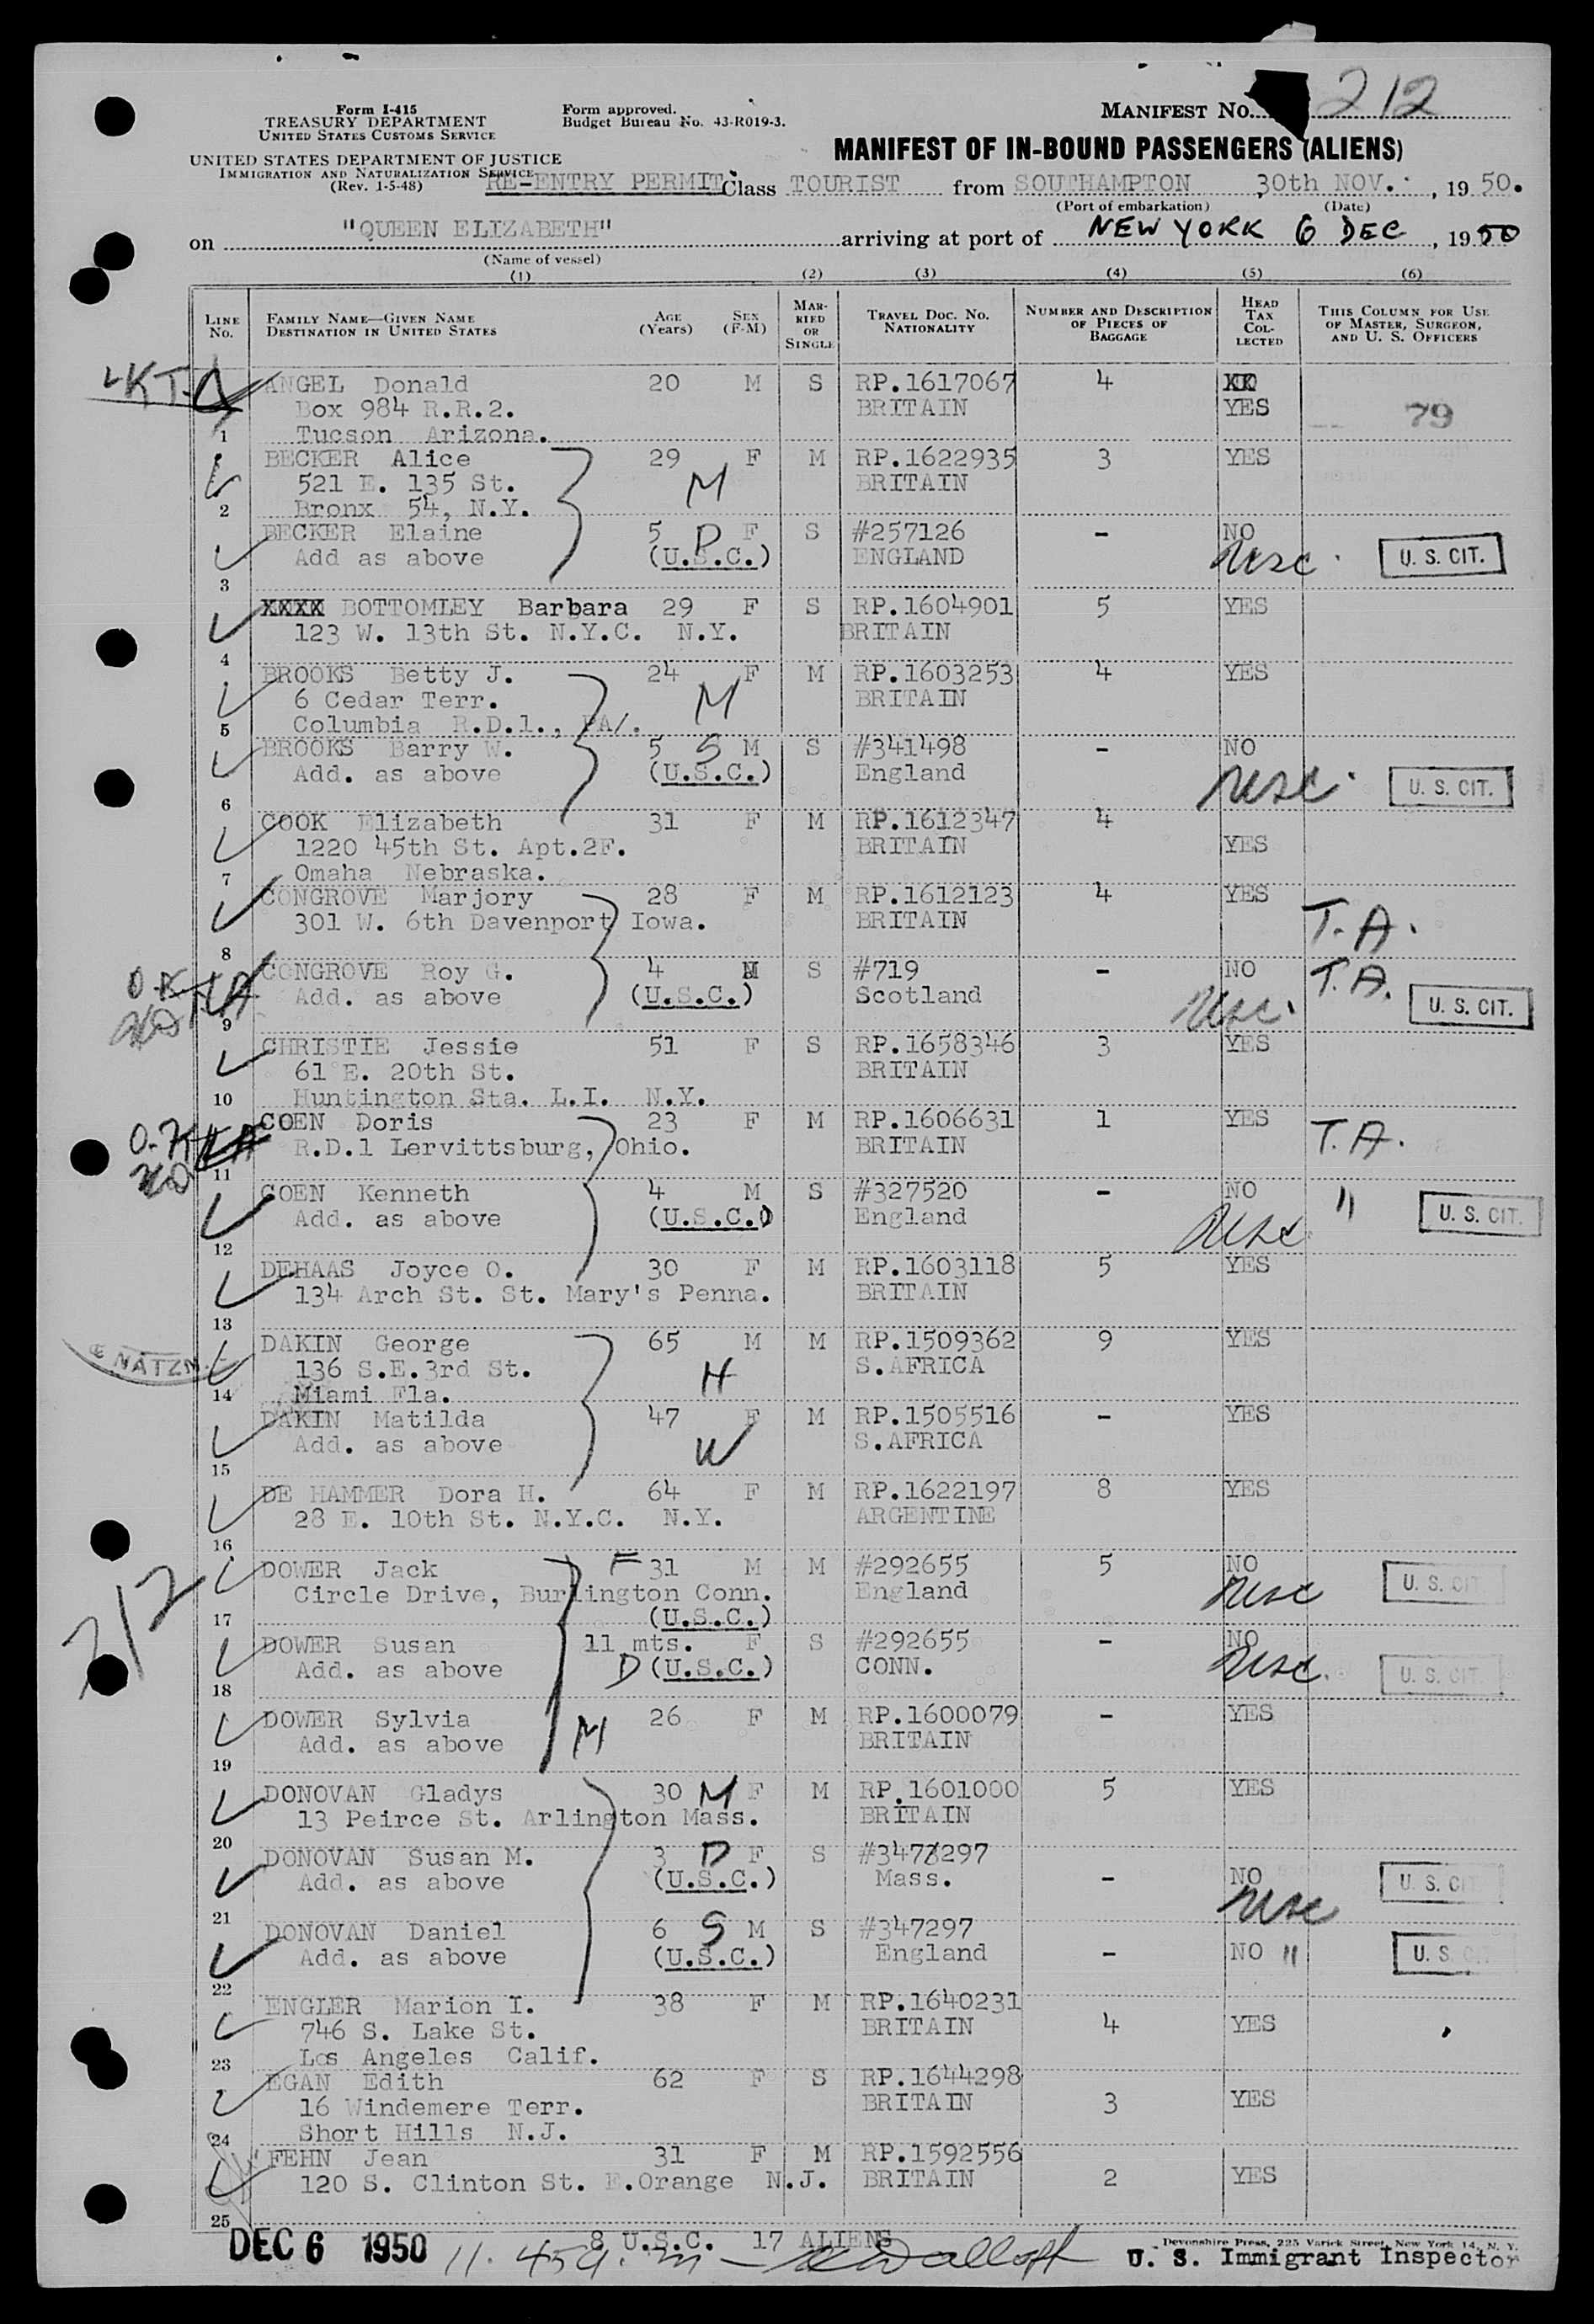 Form I-415
TREASURY DEPARTMENT
UNITED STATES CUSTOMS SERVICE
UNITED STATES DEPARTMENT OF JUSTICE
IMMIGRATION AND NATURALIZATION SERVICE
(Rev. 1-5-48)
Form approved.
Budget Bureau No. 43-R019-3.
MANIFEST No. 212
MANIFEST OF IN-BOUND PASSENGERS (ALIENS)
RE-ENTRY PERMIT. Class TOURIST from SOUTHAMPTON 30th NOV. , 19 50.
(Port of embarkation) (Date)
on "QUEEN ELIZABETH" arriving at port of NEW YORK 6 DEC , 19 50
(Name of vessel)
(1) (2) (3) (4) (5) (6)
LINE No. FAMILY NAME—GIVEN NAME DESTINATION IN UNITED STATES AGE (Years) SEX (F-M) MARRIED OR SINGLE TRAVEL DOC. No. NATIONALITY NUMBER AND DESCRIPTION OF PIECES OF BAGGAGE HEAD TAX COLLECTED THIS COLUMN FOR USE OF MASTER, SURGEON, AND U. S. OFFICERS
ANGEL Donald 20 M S RP.1617067 4 XX
Box 984 R.R.2. BRITAIN YES 79
1 Tucson Arizona.
BECKER Alice 29 F M RP.1622935 3 YES
521 E. 135 St. M BRITAIN
2 Bronx 54, N.Y.
BECKER Elaine 5 D F S #257126 - NO
Add as above (U.S.C.) ENGLAND usc. U. S. CIT.
3
XXXX BOTTOMLEY Barbara 29 F S RP.1604901 5 YES
123 W. 13th St. N.Y.C. N.Y. BRITAIN
4
BROOKS Betty J. 24 F M RP.1603253 4 YES
6 Cedar Terr. M BRITAIN
5 Columbia R.D.1., PA/.
BROOKS Barry W. 5 S M S #341498 - NO
Add. as above (U.S.C.) England usc. U. S. CIT.
6
COOK Elizabeth 31 F M RP.1612347 4
1220 45th St. Apt.2F. BRITAIN YES
7 Omaha Nebraska.
CONGROVE Marjory 28 F M RP.1612123 4 YES
301 W. 6th Davenport Iowa. BRITAIN T.A.
8
CONGROVE Roy G. 4 M S #719 - NO T.A.
Add. as above (U.S.C.) Scotland usc. U. S. CIT.
9
CHRISTIE Jessie 51 F S RP.1658346 3 YES
61 E. 20th St. BRITAIN
10 Huntington Sta. L.I. N.Y.
COEN Doris 23 F M RP.1606631 1 YES
R.D.1 Lervittsburg, Ohio. BRITAIN T.A.
11
COEN Kenneth 4 M S #327520 - NO "
Add. as above (U.S.C.) England usc U. S. CIT.
12
DEHAAS Joyce O. 30 F M RP.1603118 5 YES
134 Arch St. St. Mary's Penna. BRITAIN
13
DAKIN George 65 M M RP.1509362 9 YES
NATZN. 136 S.E.3rd St. H S.AFRICA
14 Miami Fla.
DAKIN Matilda 47 F M RP.1505516 - YES
Add. as above W S.AFRICA
15
DE HAMMER Dora H. 64 F M RP.1622197 8 YES
28 E. 10th St. N.Y.C. N.Y. ARGENTINE
16
DOWER Jack F 31 M M #292655 5 NO
212 Circle Drive, Burlington Conn. England usc U. S. CIT
17 (U.S.C.)
DOWER Susan 11 mts. F S #292655 - NO
Add. as above D (U.S.C.) CONN. usc. U. S. CIT.
18
DOWER Sylvia 26 F M RP.1600079 - YES
Add. as above M BRITAIN
19
DONOVAN Gladys 30 M F M RP.1601000 5 YES
13 Peirce St. Arlington Mass. BRITAIN
20
DONOVAN Susan M. 3 D F S #3473297
Add. as above (U.S.C.) Mass. - NO usc U. S. CI
21
DONOVAN Daniel 6 S M S #347297
Add. as above (U.S.C.) England - NO " U. S.
22
ENGLER Marion I. 38 F M RP.1640231
746 S. Lake St. BRITAIN 4 YES
23 Los Angeles Calif.
EGAN Edith 62 F S RP.1644298
16 Windemere Terr. BRITAIN 3 YES
24 Short Hills N.J.
FEHN Jean 31 F M RP.1592556
120 S. Clinton St. E.Orange N.J. BRITAIN 2 YES
25
DEC 6 1950 8 U.S.C. 17 ALIENS
Devonshire Press, 225 Varick Street, New York 14, N. Y.
U. S. Immigrant Inspector